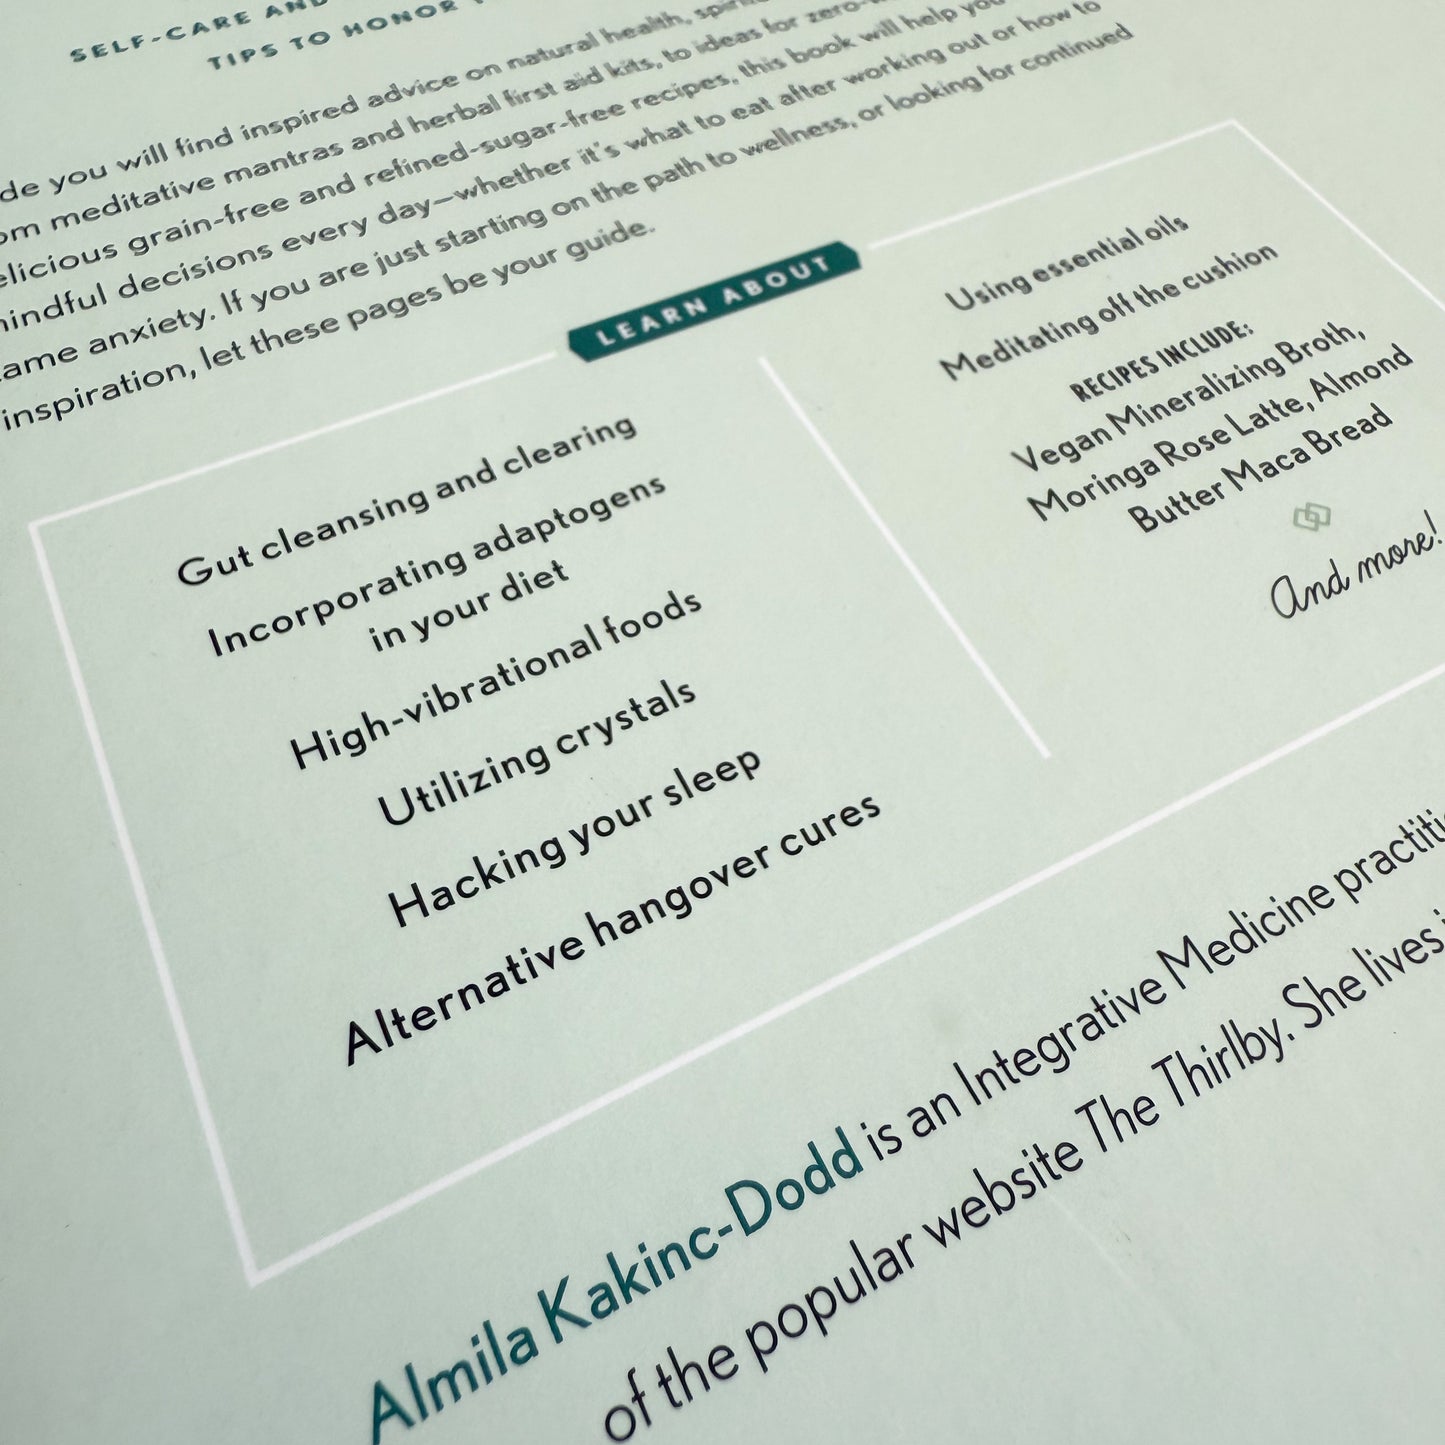 SELF-CARE AND
TIPS TO HONOR
de you will find inspired advice on natural health,
om meditative mantras and herbal first aid kits, to ideas for
elicious grain-free and refined-sugar-free recipes, this book will help you
indful decisions every day—whether it's what to eat after working out or how to
ame anxiety. If you are just starting on the path to wellness, or looking for continued
inspiration, let these pages be your guide.
LEARN ABOUT
Gut cleansing and clearing
Incorporating adaptogens
in your diet
High-vibrational foods
Utilizing crystals
Hacking your sleep
Alternative hangover cures
Using essential oils
Meditating off the cushion
RECIPES INCLUDE:
Vegan Mineralizing Broth,
Moringa Rose Latte, Almond
Butter Maca Bread
And more!
Almila Kakinc-Dodd is an Integrative Medicine practiti
of the popular website The Thirlby. She lives i